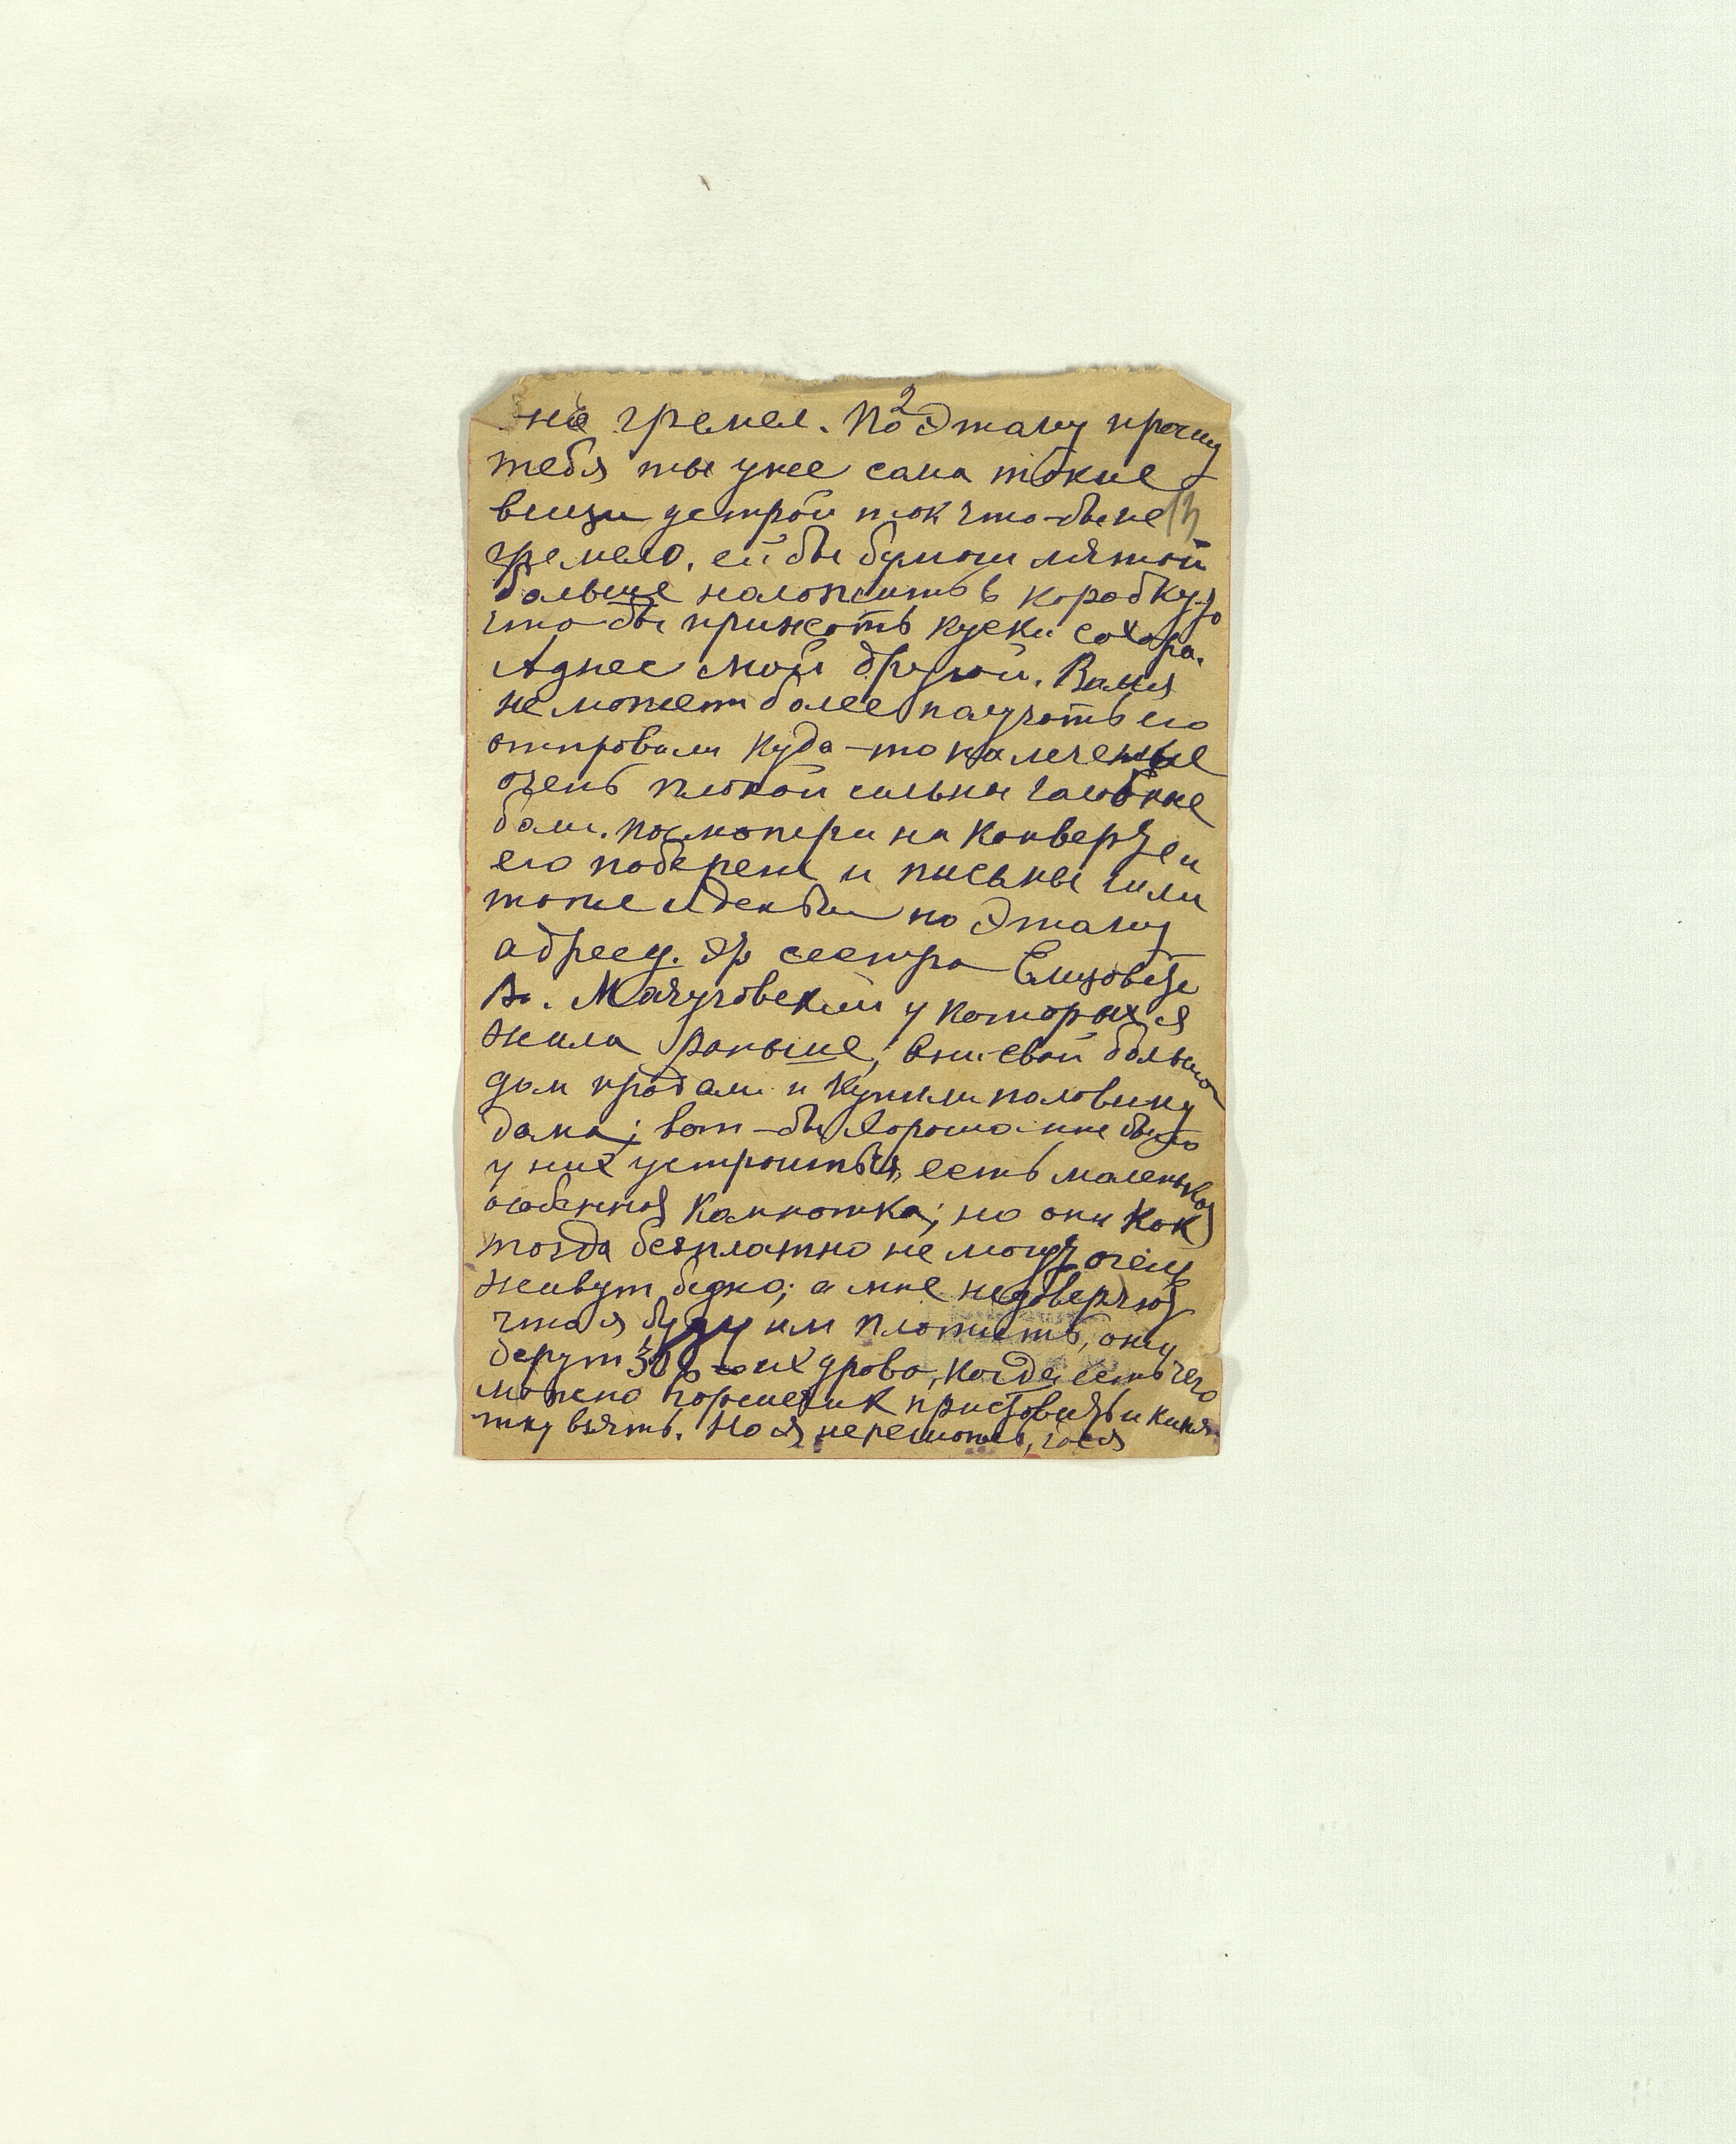 2
не гремел. Поэтаму прошу
тебя ты уже сама такие
вещи устрой так что-бы не
13
гремело. ей бы бумаги мятой
больше наложить в коробку
что-бы прижать куски сахара.
Адрес мой другой. Ваня
не может более получать его
отправили куда-то на лечение
очень плохой сильны галовные
боли. посмотери на конверте и
его побереги и письмы шли
тоже и деньги по этаму
адресу. сестра Елизовета
Вл. у которых я
жила раньше, они свой большой
дом продали и купили половину
дома; вот-бы хорошо мне было
у них устроиться, есть маленькая
особенная комнотка; но они как
тогда безплатно не могут очень
живут бедно; а мне недоверяют
что я буду им плотить, они
берут 30 р их дрова, когда есть чего
можно горшечик приставить и кипя-
тку взять. Но я нерешаюсь,